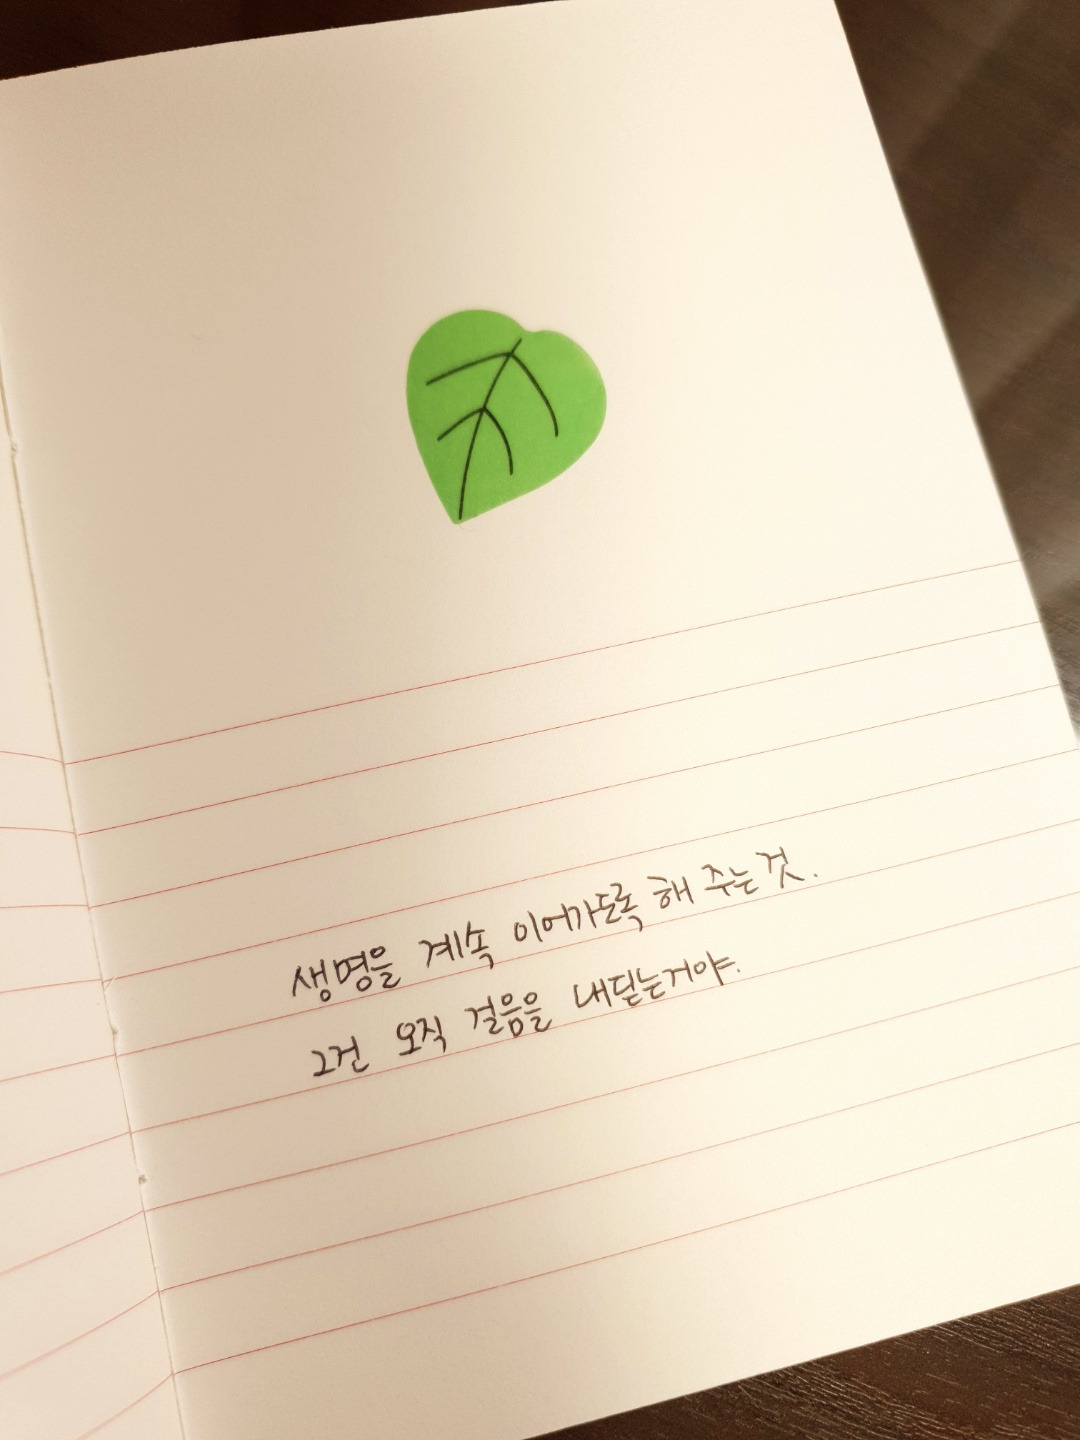 생명을 계속 이어가도록 해 주는 것.
그건 오직 걸음을 내딛는거야.